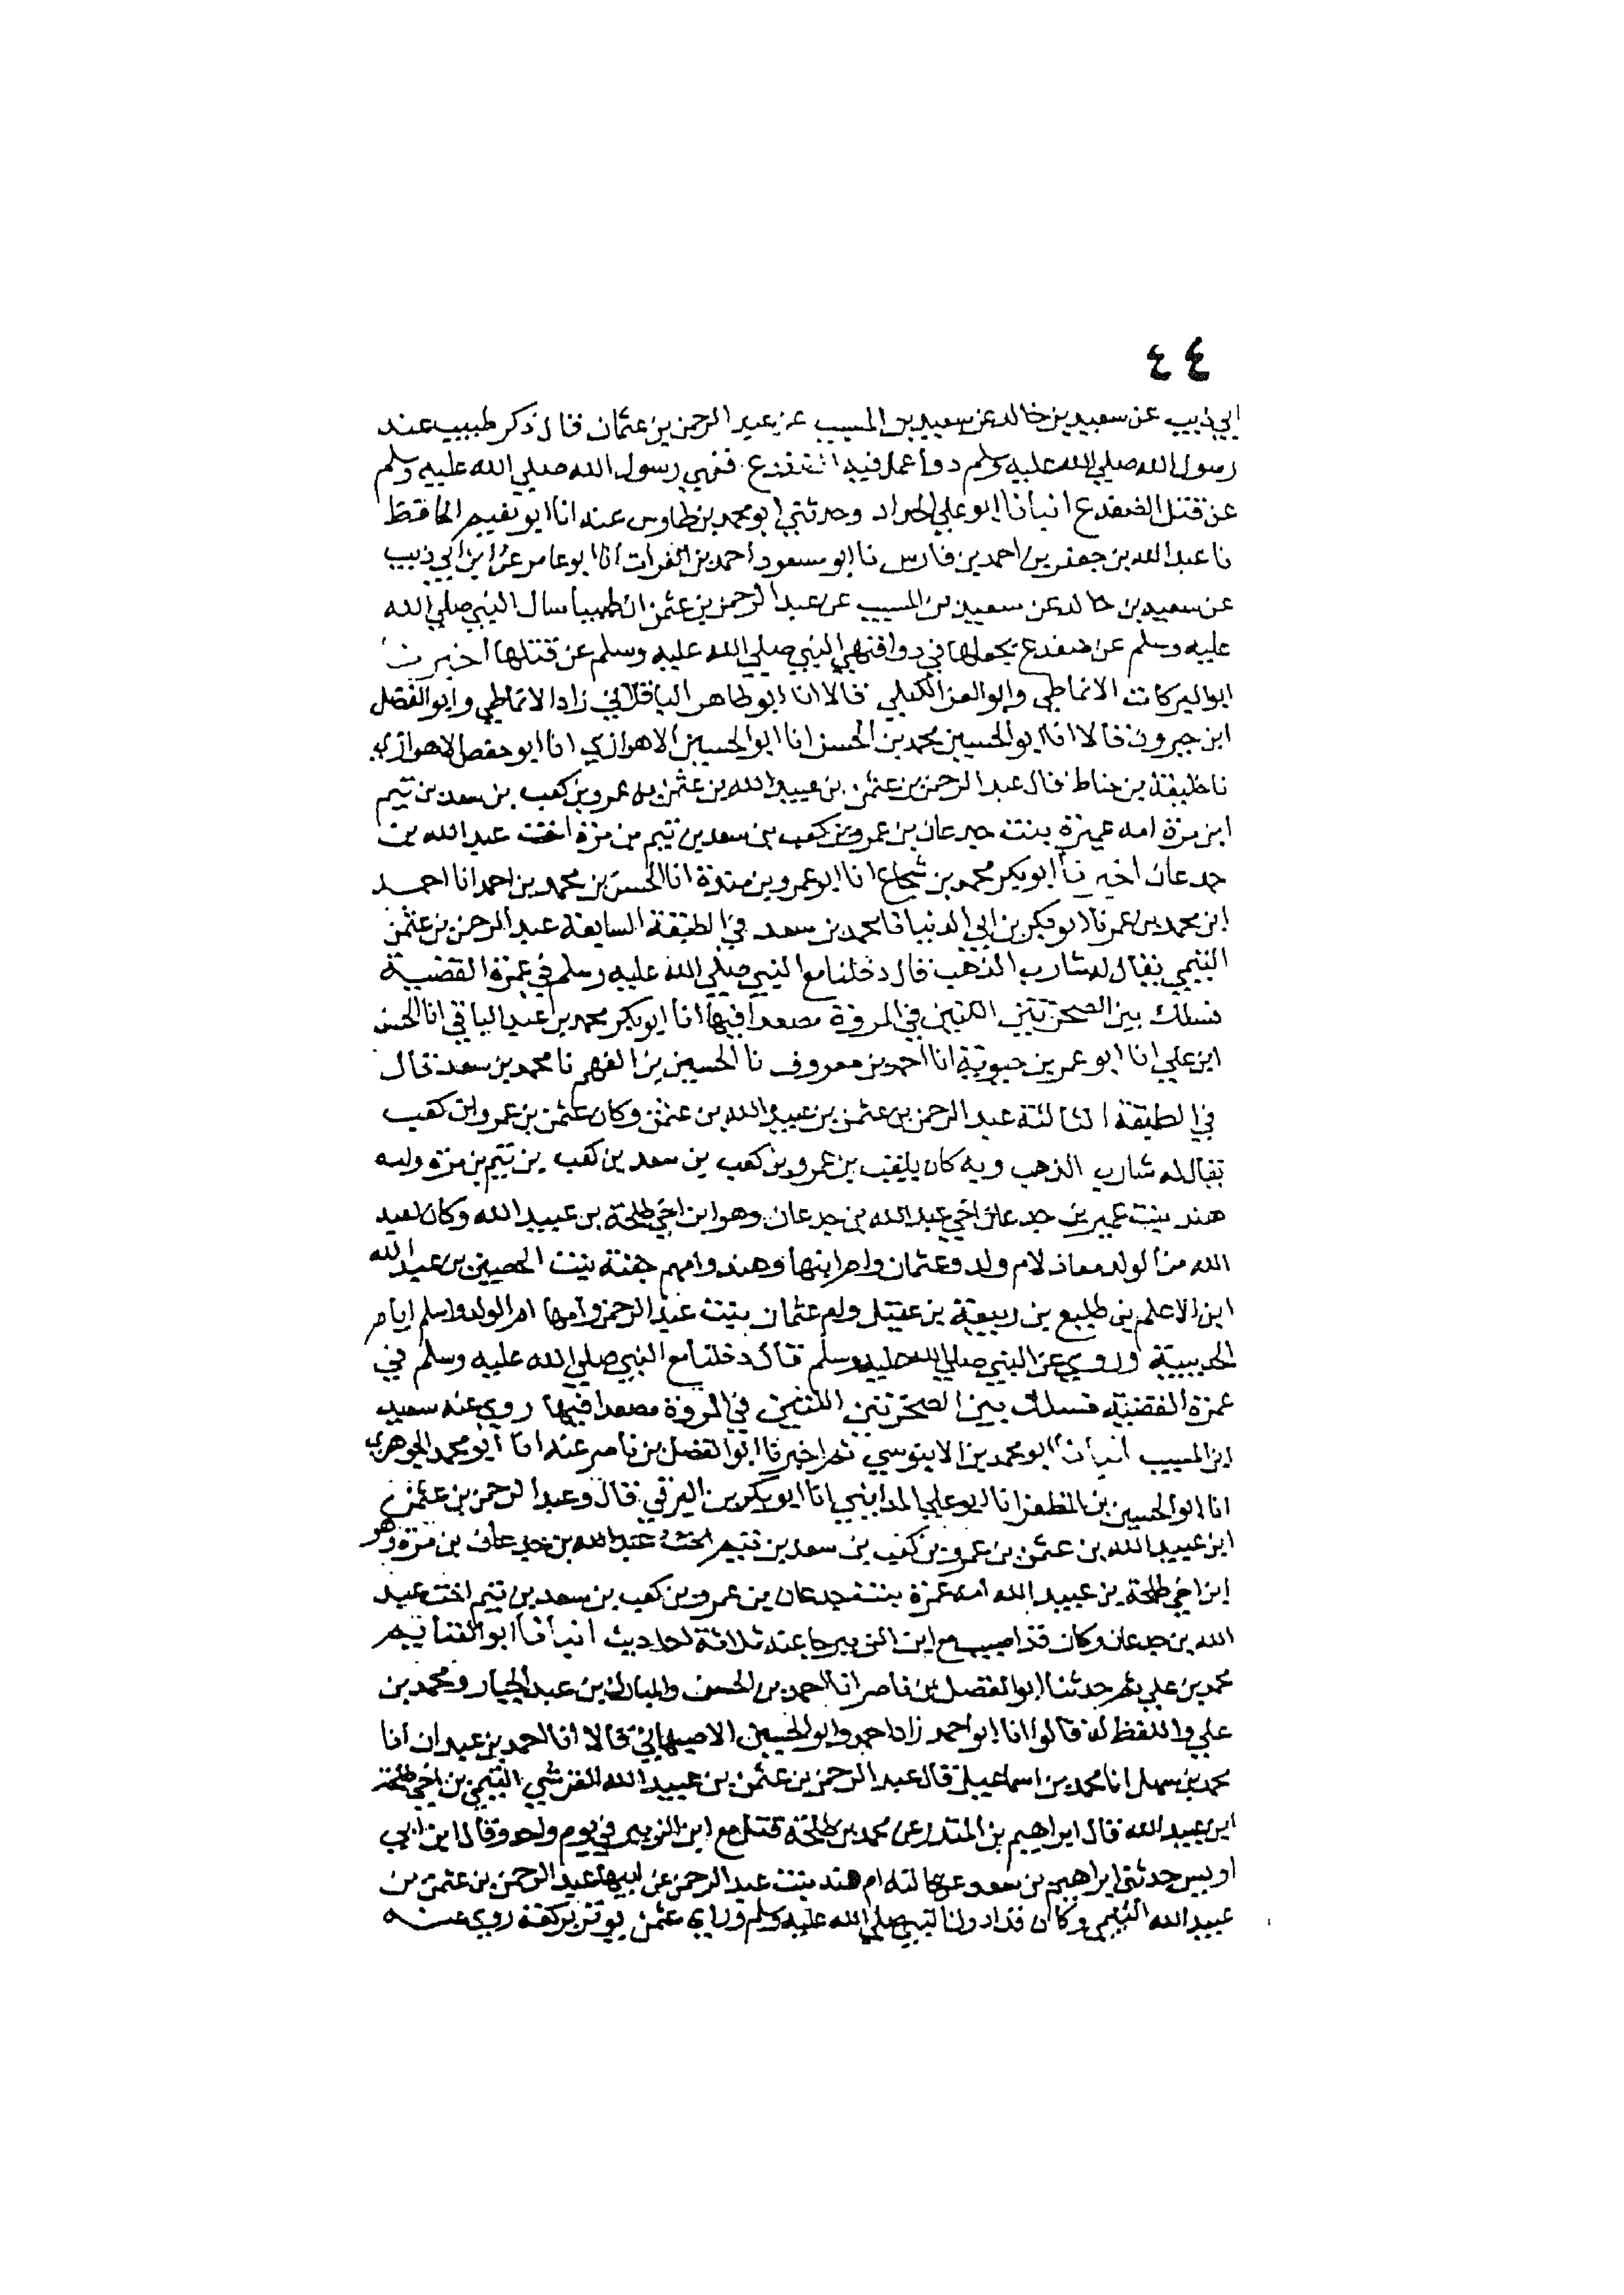 ٤٤
ابي ذييب عن سعيد بن خالد عن سعيد بن المسيب عن عبد الرحمن بن عثمان قال ذكر طبيب عند
رسول الله صلي الله عليه وسلم دوا عمل فيه الضفدع فنهي رسول الله صلي الله عليه وسلم
عن قتل الضفدع انبانا ابو علي الحداد وحدثني ابو محمد بن طاوس عنه انا ابو نعيم الحافظ
نا عبد الله بن جعفر بن احمد بن فارس نا ابو مسعود احمد بن الفرات انا ابو عامر عن ابن ابي ذييب
عن سعيد بن خالد عن سعيد بن المسيب عن عبد الرحمن بن عثمن ان طبيبا سال النبي صلي الله
عليه وسلم عن ضفدع يجعلها في دوا فنهي النبي صلي الله عليه وسلم عن قتلها اخبرنا
ابو البركات الانماطي وابو العز الكيلي قالا انا ابو طاهر الباقلاني زاد الانماطي وابو الفضل
ابن خيرون قالا انا ابو الحسين محمد بن الحسن انا ابو الحسين الاهوازي انا ابو حفص الاهوازي
نا خليفة بن خياط قال عبد الرحمن بن عثمن بن عبيد الله بن عثمن بن عمرو بن كعب بن سعد بن تيم
ابن مرة امه عميرة بنت جدعان بن عمرو بن كعب بن سعد بن تيم بن مرة اخت عبد الله بن
جدعان اخبرنا ابو بكر محمد بن شجاع انا ابو عمرو بن مندة انا الحسن بن محمد بن احمد انا احمد
ابن محمد بن عمر نا ابو بكر بن ابي الدنيا نا محمد بن سعد في الطبقة السابعة عبد الرحمن بن عثمن
التيمي يقال له شارب الذهب قال دخلنا مع النبي صلي الله عليه وسلم في عمرة القضية
فسلك بين الصخرتين اللتين في المروة مصعدا فيها انا ابو بكر محمد بن عبد الباقي انا الحسن
ابن علي انا ابو عمر بن حيوية انا احمد بن معروف نا الحسين بن الفهم نا محمد بن سعد قال
في الطبقة الثالثة عبد الرحمن بن عثمن بن عبيد الله بن عثمن وكان عثمن بن عمرو ابن كعب
يقال له شارب الذهب وبه كان يلقب بن عمرو بن كعب بن سعد بن كعب بن تيم بن مرة وامه
هند بنت عمير بن جدعان اخي عبد الله بن جدعان وهو ابن اخي طلحة بن عبيد الله وكان لعبد
الله من الولد معاذ لام ولد وعثمان وامرابنها وهند وامهم جفنة بنت الحصين بن عبد الله
ابن الاعلم بن طليع بن ربيعة بن عقيل وام عثمان بنت عبد الرحمن وامها ام الولد واسلم ايام
الحديبية وروي عن النبي صلي الله عليه وسلم قال دخلنا مع النبي صلي الله عليه وسلم في
عمرة القضية فسلك بين الصخرتين اللتين في المروة مصعدا فيها روي عنه سعيد
ابن المسيب انبانا ابو محمد بن الابنوسي ثم اخبرنا ابو الفضل بن ناصر عنه انا ابو محمد الجوهري
انا ابو الحسين بن المظفر انا ابو علي المدايني انا ابو بكر بن البرقي قال وعبد الرحمن بن عثمن
ابن عبيد الله بن عثمن بن عمرو بن كعب بن سعد بن تيم اخت عبد الله بن جدعان بن مرة وهو
ابن اخي طلحة بن عبيد الله امه عمرة بنت جدعان بن عمرو بن كعب بن سعد بن تيم اخت عبد
الله بن جدعان وكان قد اصيب مع ابن الزبير جا عنه ثلاثة احاديث انبانا ابو الغنايم
محمد بن علي ثم حدثنا ابو الفضل بن ناصر انا احمد بن الحسن والمبارك بن عبد الجبار ومحمد بن
علي واللفظ له قالوا انا ابو احمد زاد احمد وابو الحسين الاصبهاني قالا انا احمد بن عبدان انا
محمد بن سهل انا محمد بن اسماعيل قال عبد الرحمن بن عثمن بن عبيد الله القرشي التيمي بن اخي طلحة
ابن عبيد الله قال ابراهيم بن المنذر عن محمد بن طلحة قتل مع ابن الزبير في يوم واحد وقال ابن ابي
اويس حدثني ابراهيم بن سعد عن خالته ام هند بنت عبد الرحمن عن ابيها عبد الرحمن بن عثمن بن
عبيد الله التيمي وكان قد ادرك النبي صلي الله عليه وسلم وراي عثمن يوتر بركعة روي عنه